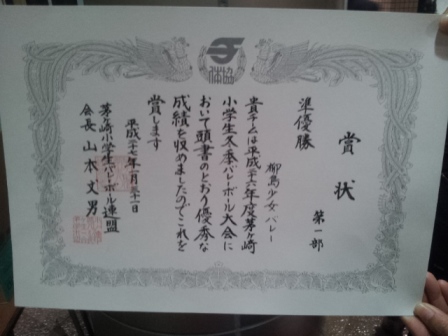 体協
賞状
第一部
準優勝
柳島少女バレー
貴チームは平成二十六年度茅ヶ崎
小学生冬季バレーボール大会に
おいて頭書のとおり優秀な
成績を収めましたのでこれを
賞します
平成二十七年一月三十一日
茅ヶ崎小学生バレーボール連盟
会長 山本文男